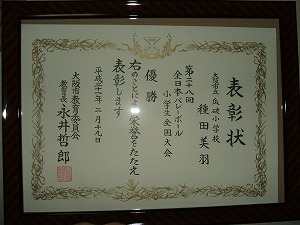 表彰状
大阪市立広
小学校
種田美羽
第二十八回
全日本バレーボール
小学生全国大会
優勝
右のことによ
栄誉をたたえ
表彰します
平成二十一年二月十九日
大阪市教育委員会
教育長 永井哲郎